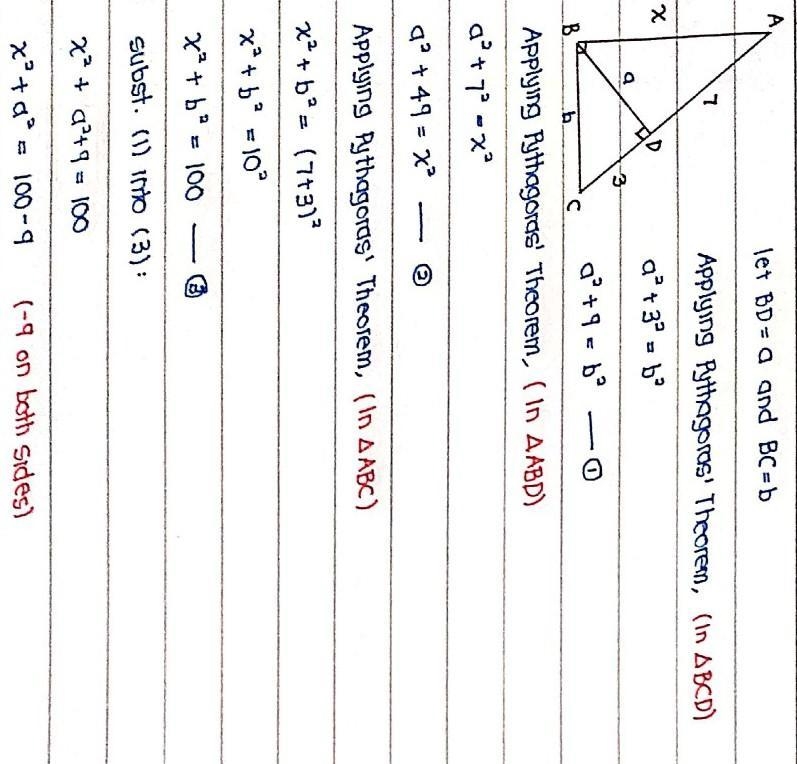 A
7
let BD = a and BC = b
x
a
D
3
B
b
C
Applying Pythagoras' Theorem, (In △BCD)
a² + 3² = b²
a² + 9 = b² — ①
Applying Pythagoras' Theorem, (In △ABD)
a² + 7² = x²
a² + 49 = x² — ②
Applying Pythagoras' Theorem, (In △ABC)
x² + b² = (7+3)²
x² + b² = 10²
x² + b² = 100 — ③
subst. (1) into (3):
x² + a²+9 = 100
x² + a² = 100-9 (-9 on both sides)